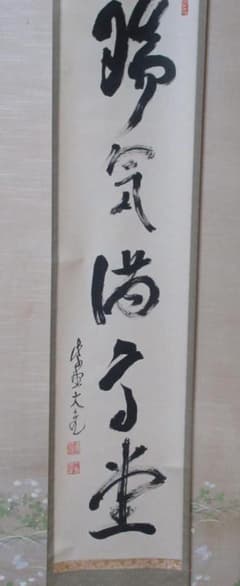 瑞気満高堂